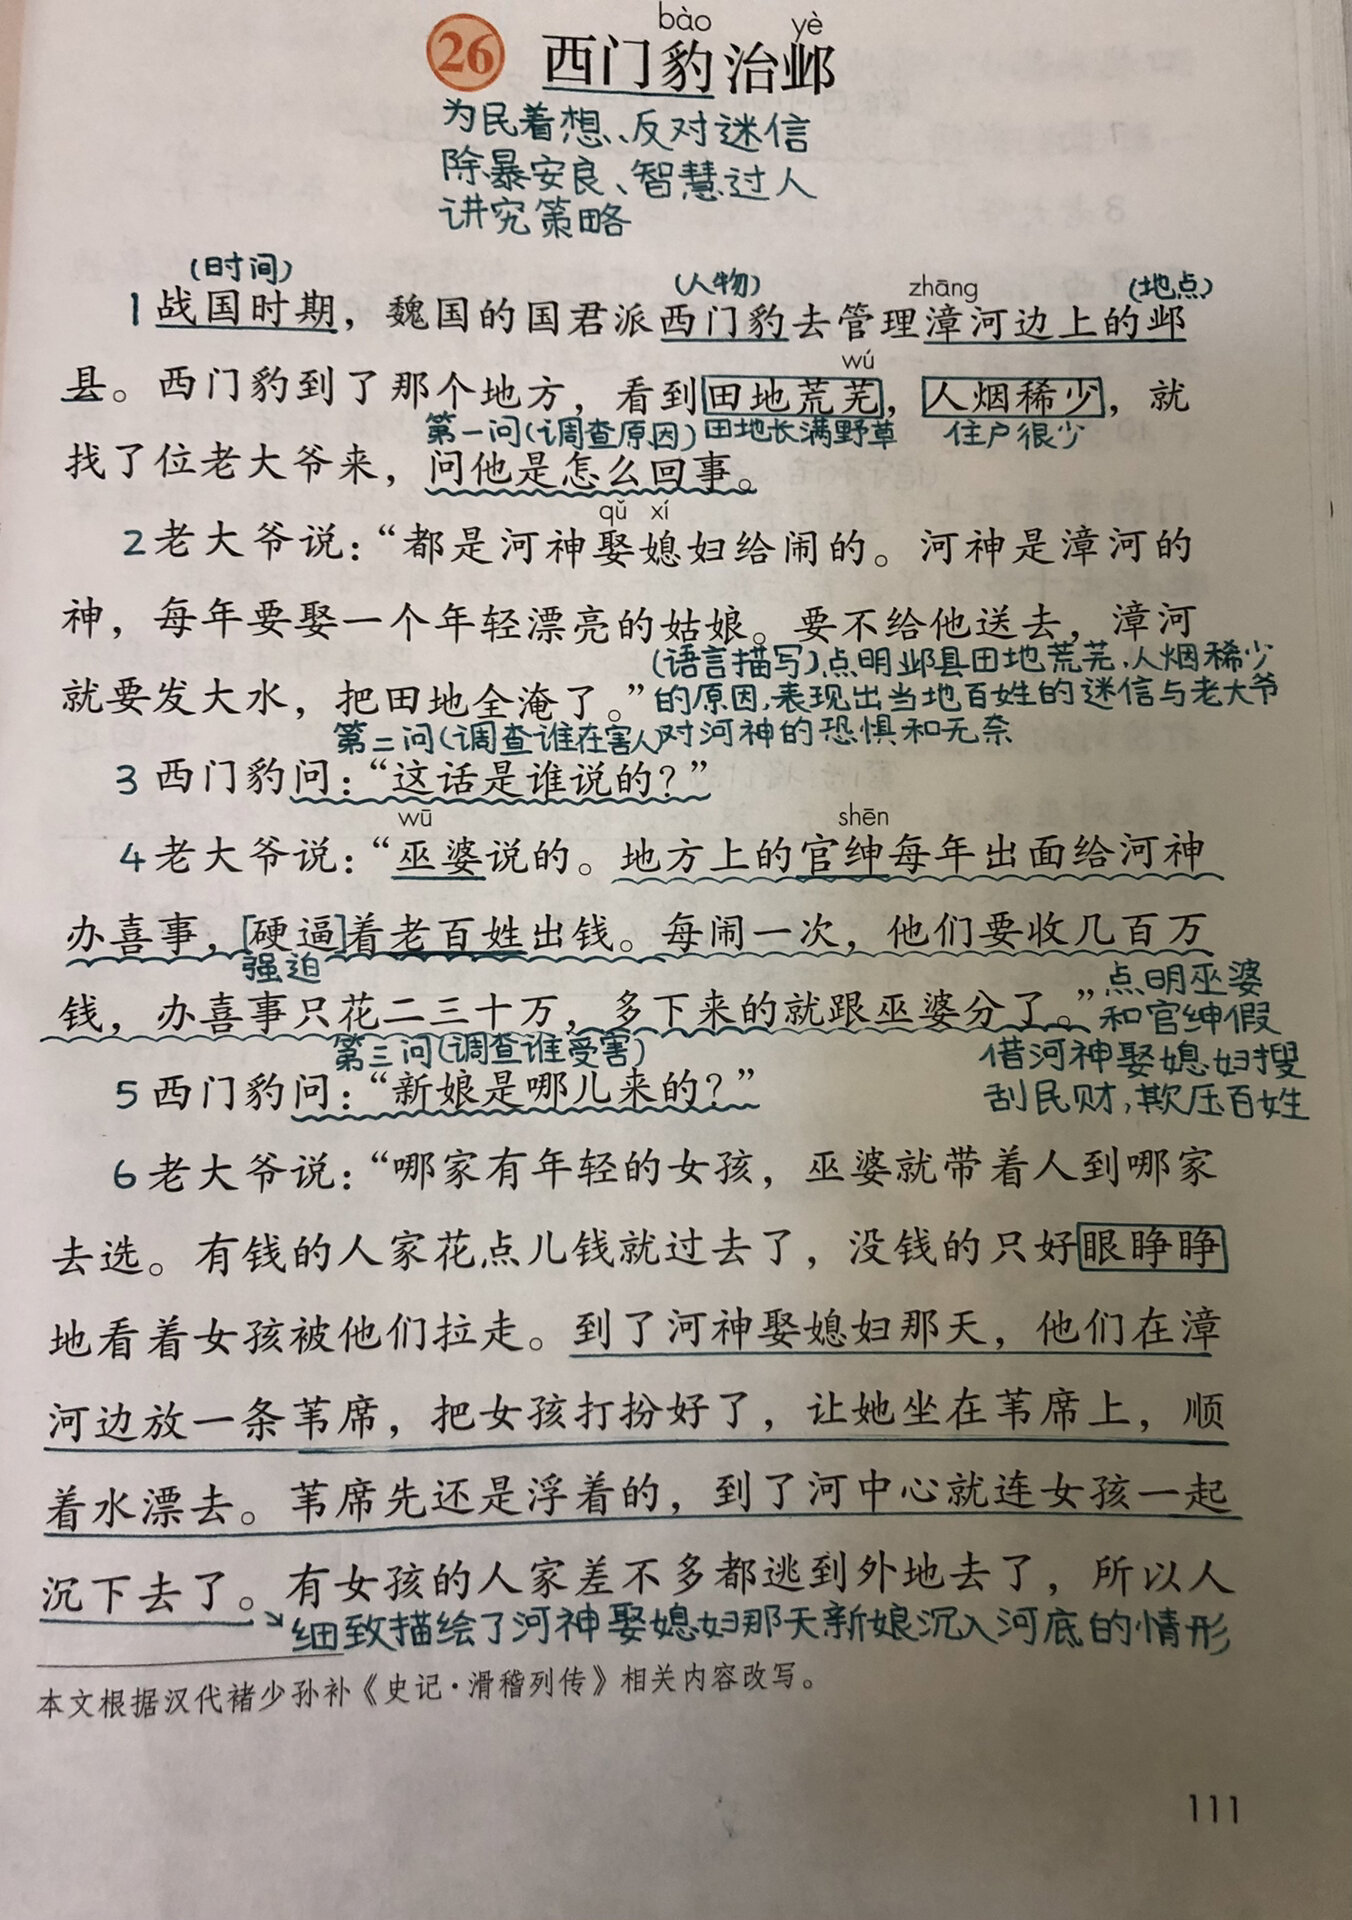 bào yè
26 西门豹治邺
为民着想、反对迷信
除暴安良、智慧过人
讲究策略
(时间) (人物) zhāng (地点)
1 战国时期，魏国的国君派西门豹去管理漳河边上的邺
wú
县。西门豹到了那个地方，看到田地荒芜，人烟稀少，就
第一问(调查原因) 田地长满野草 住户很少
找了位老大爷来，问他是怎么回事。
qǔ xí
2 老大爷说：“都是河神娶媳妇给闹的。河神是漳河的
神，每年要娶一个年轻漂亮的姑娘。要不给他送去，漳河
(语言描写)点明邺县田地荒芜、人烟稀少
就要发大水，把田地全淹了。”的原因，表现出当地百姓的迷信与老大爷
第二问(调查谁在害人)对河神的恐惧和无奈
3 西门豹问：“这话是谁说的？”
wū shēn
4 老大爷说：“巫婆说的。地方上的官绅每年出面给河神
办喜事，硬逼着老百姓出钱。每闹一次，他们要收几百万
强迫
钱，办喜事只花二三十万，多下来的就跟巫婆分了。”点明巫婆
和官绅假
第三问(调查谁受害) 借河神娶媳妇搜
5 西门豹问：“新娘是哪儿来的？” 刮民财，欺压百姓
6 老大爷说：“哪家有年轻的女孩，巫婆就带着人到哪家
去选。有钱的人家花点儿钱就过去了，没钱的只好眼睁睁
地看着女孩被他们拉走。到了河神娶媳妇那天，他们在漳
河边放一条苇席，把女孩打扮好了，让她坐在苇席上，顺
着水漂去。苇席先还是浮着的，到了河中心就连女孩一起
沉下去了。有女孩的人家差不多都逃到外地去了，所以人
细致描绘了河神娶媳妇那天新娘沉入河底的情形
本文根据汉代褚少孙补《史记·滑稽列传》相关内容改写。
111